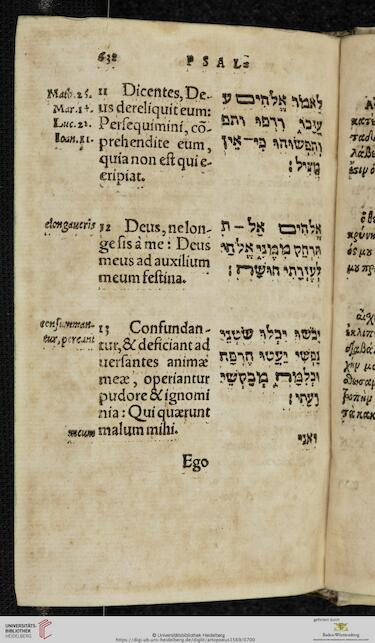 632 PSAL=
Matt. 25.
Mar. 14.
Luc. 22.
Ioan. 11.
11 Dicentes, De-
us dereliquit eum:
Persequimini, cõ-
prehendite eum,
quia non est qui e-
eripiat.
לאמר אלהים ע
מציל:
elongaueris
12 Deus, ne lon-
ge sis à me: Deus
meus ad auxilium
meum festina.
אלהים אל-ת
תרחק ממני אלהי
לעזרתי חושה:
consumman-
tur, pereant
13 Confundan-
tur, & deficiant ad
uersantes animæ
meæ, operiantur
pudore & ignomi
nia: Qui quærunt
malum mihi.
meum
יבשו יכלו שטני
נפשי יעטו חרפה
וכלמה מבקשי
רעתי:
ואני
Ego
UNIVERSITÄTS-
BIBLIOTHEK
HEIDELBERG
© Universitätsbibliothek Heidelberg
https://digi.ub.uni-heidelberg.de/diglit/artopoeus1569/0700
gefördert durch
Baden-Württemberg